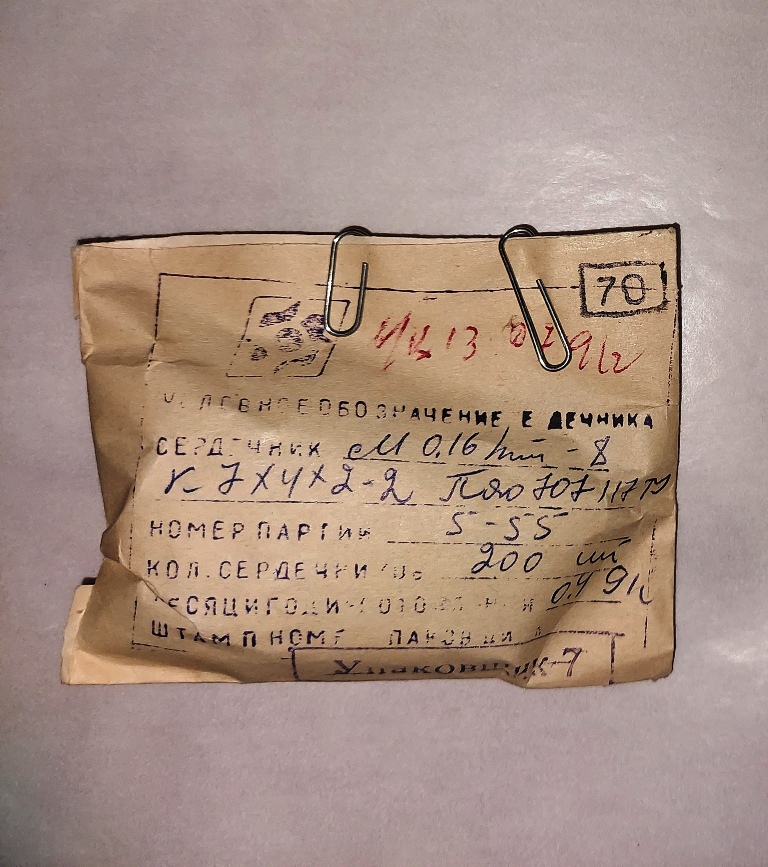 70
13 91г
УСЛОВНОЕ ОБОЗНАЧЕНИЕ СЕРДЕЧНИКА
СЕРДЕЧНИК М 0.16 - 8
К 7×4×2-2 Пяо 707 117 ТУ
НОМЕР ПАРТИИ 5-55
КОЛ. СЕРДЕЧНИКОВ 200 шт
МЕСЯЦ И ГОД ИЗГОТОВЛЕНИЯ 04 91г
ШТАМП НОМЕР
Упаковщик-7